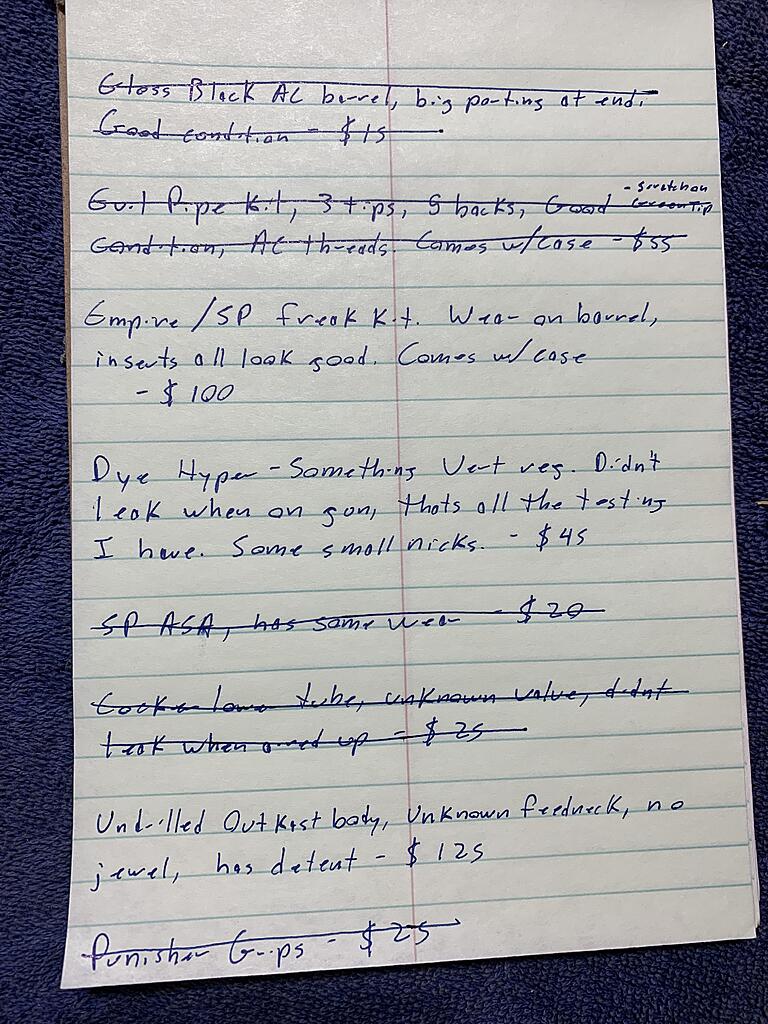 Gloss Black AC barrel, big porting at end.
Good condition - $15
- Scratch on
Evil Pipe Kit, 3 tips, 5 backs, Good Green Tip
Condition, AC threads. Comes w/case - $55
Empire/SP Freak Kit. Wear on barrel,
inserts all look good. Comes w/ case
- $100
Dye Hyper-Something Vert reg. Didn't
leak when on gun, thats all the testing
I have. Some small nicks. - $45
SP ASA, has some wear - $20
Cocker lower tube, unknown valve, didnt
leak when aired up - $25
Undrilled Outkast body, Unknown feedneck, no
jewel, has detent - $125
Punisher Grips - $25